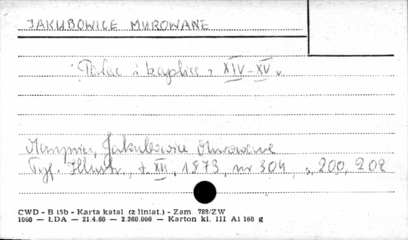 JAKUBOWICE MUROWANE
Pałac i kaplica z XIV-XV w.
Jakubowice Murowane
Tyg. Illustr., t. XII, 1873, nr 304, s. 200, 202
CWD - B 15b - Karta katal. (z liniat.) - Zam. 788/ZW
1060 — LDA — 21.4.60 — 2.360.000 — Karton kl. III A1 160 g